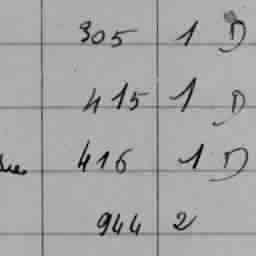 305 1 D
415 1 D
416 1 D
944 2